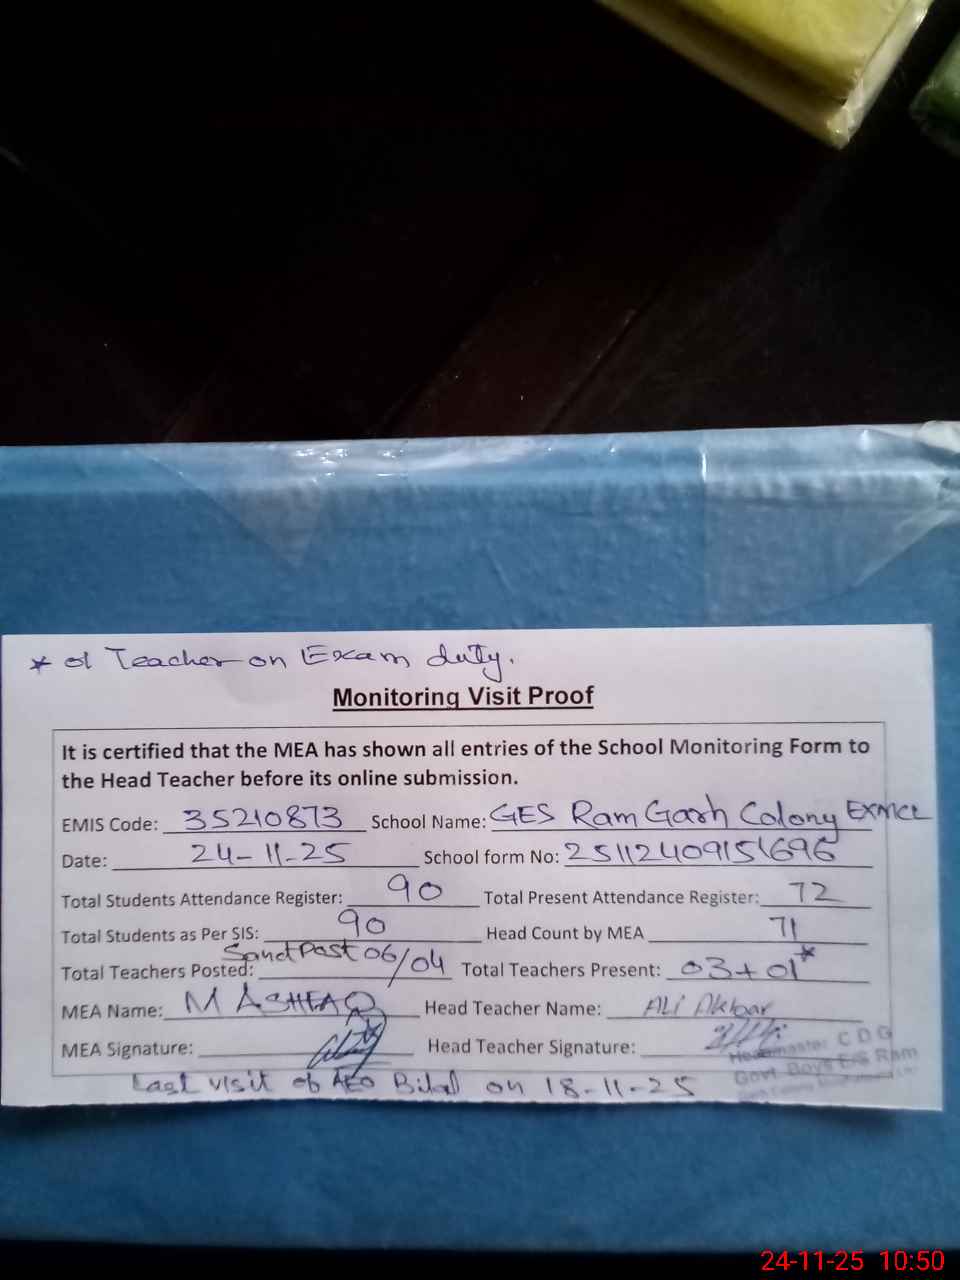 * 01 Teacher on Exam duty.
Monitoring Visit Proof
It is certified that the MEA has shown all entries of the School Monitoring Form to
the Head Teacher before its online submission.
EMIS Code: 35210873 School Name: GES Ram Garh Colony EXMCL
Date: 24-11-25 School form No: 25112409151696
Total Students Attendance Register: 90 Total Present Attendance Register: 72
Total Students as Per SIS: 90 Head Count by MEA 71
Total Teachers Posted: Sanct Post 06/04 Total Teachers Present: 03+01*
MEA Name: M ASHFAQ Head Teacher Name: ALi Akbar
MEA Signature: Head Teacher Signature:
Headmaster C D G
Govt. Boys E/S Ram
Last visit of AEO Bilal on 18-11-25
24-11-25 10:50